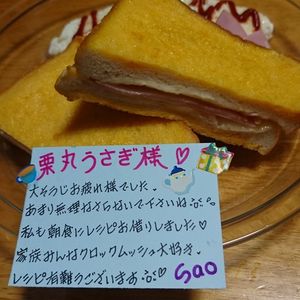 栗丸うさぎ様♡
大そうじお疲れ様でした。
あまり無理なさらないで下さいね
私も朝食にレシピお借りしました♡
家族みんなクロックムッシュ大好き。
レシピ有難うございます♡
Sao